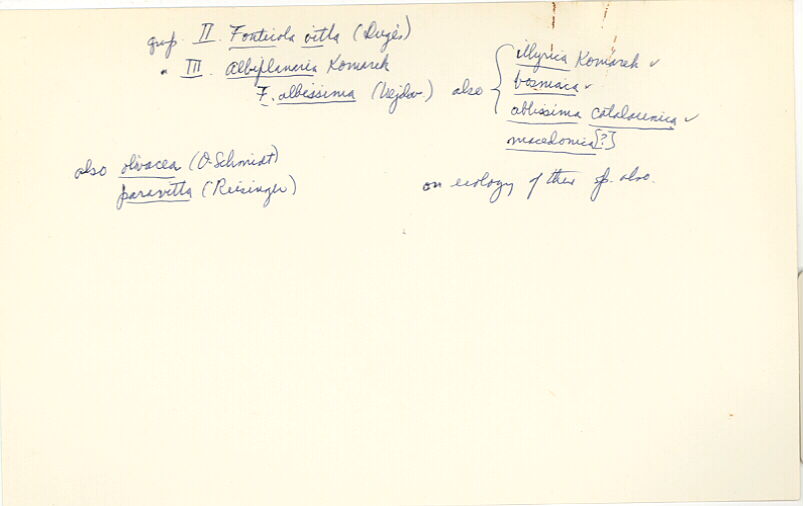 grp. II. Fonticola vitta (Dugès)
" III. Albiplanaria Komarek
F. albissima (Vejdov.) also { illyrica Komarek ✓
bosniaca ✓
albissima catalaunica ✓
macedonica [?]
also olivacea (O. Schmidt)
paravitta (Reisinger)
on ecology of these sp. also.